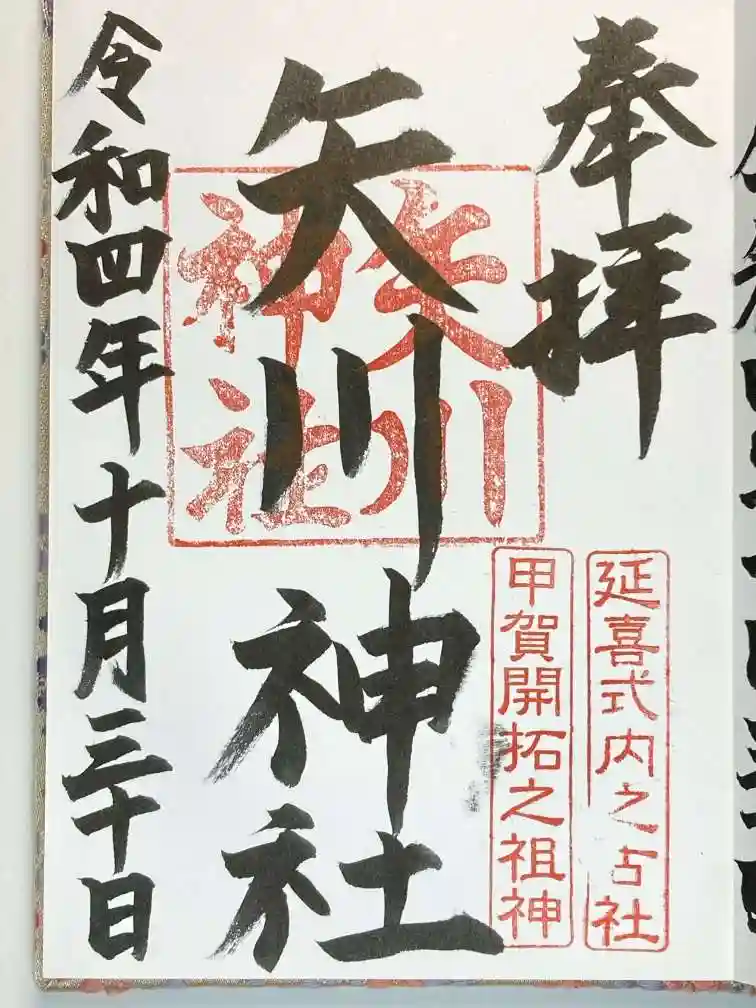 奉拝
延喜式内之古社
甲賀開拓之祖神
矢川神社
矢川
神社
令和四年十月三十日